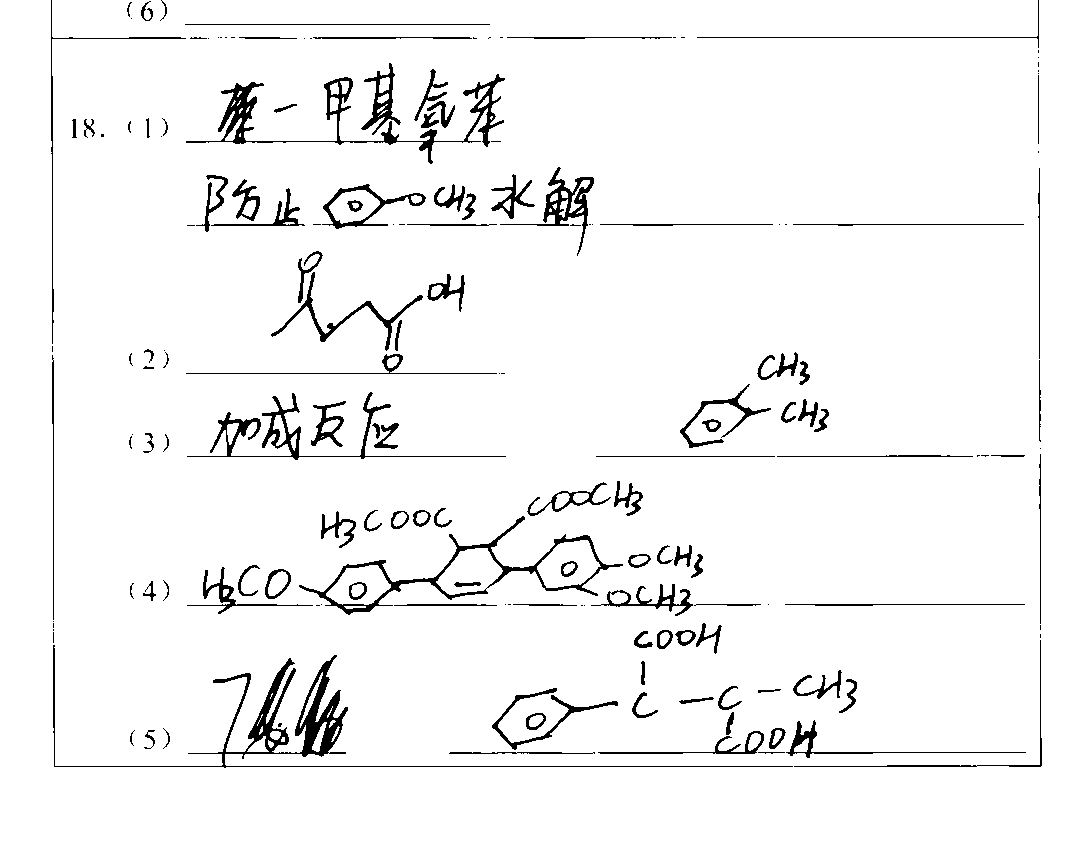 (6)
18. (1) 一甲基氧苯
防止 OCH3 水解
O OH
O
(2)
CH3
CH3
(3) 加成反应
H3COOC COOCH3
(4) H3CO OCH3
OCH3
COOH
(5) 7 C - C - CH3
COOH